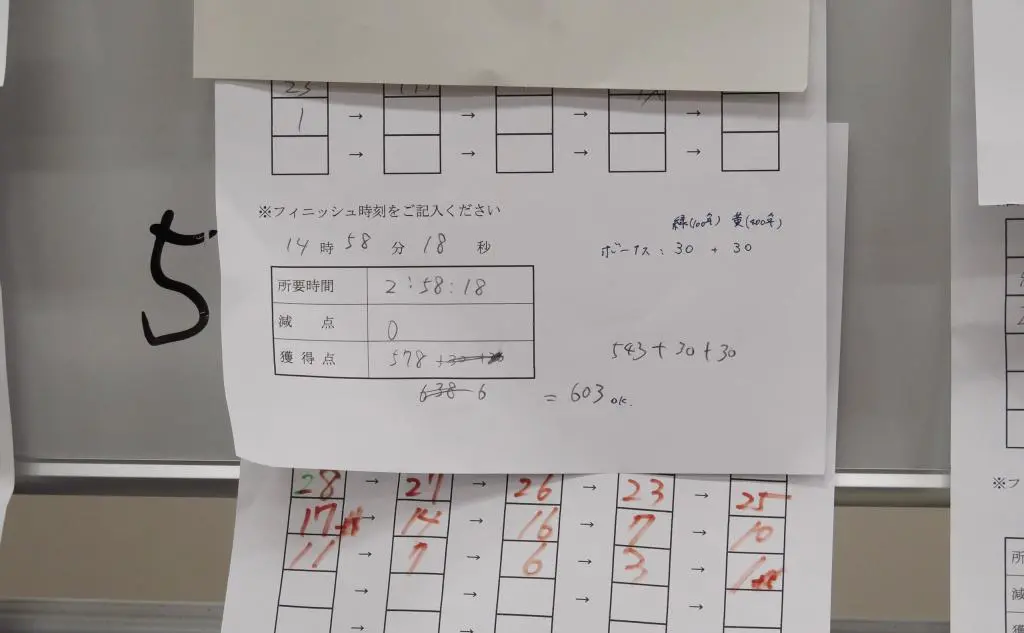 23
1 → → → →
→ → → →
※フィニッシュ時刻をご記入ください
14 時 58 分 18 秒
緑(100弁) 黄(200弁)
ボーナス: 30 + 30
所要時間 2:58:18
減 点 0
獲得点 578 +30 +30
638 6
543+30+30
= 603 OK.
5
28 → 27 → 26 → 23 → 25
17 → 14 → 16 → 7 → 10
11 → 7 → 6 → 3 → 1
→ → → →
→ → → →
→
※フ
所
減
獲